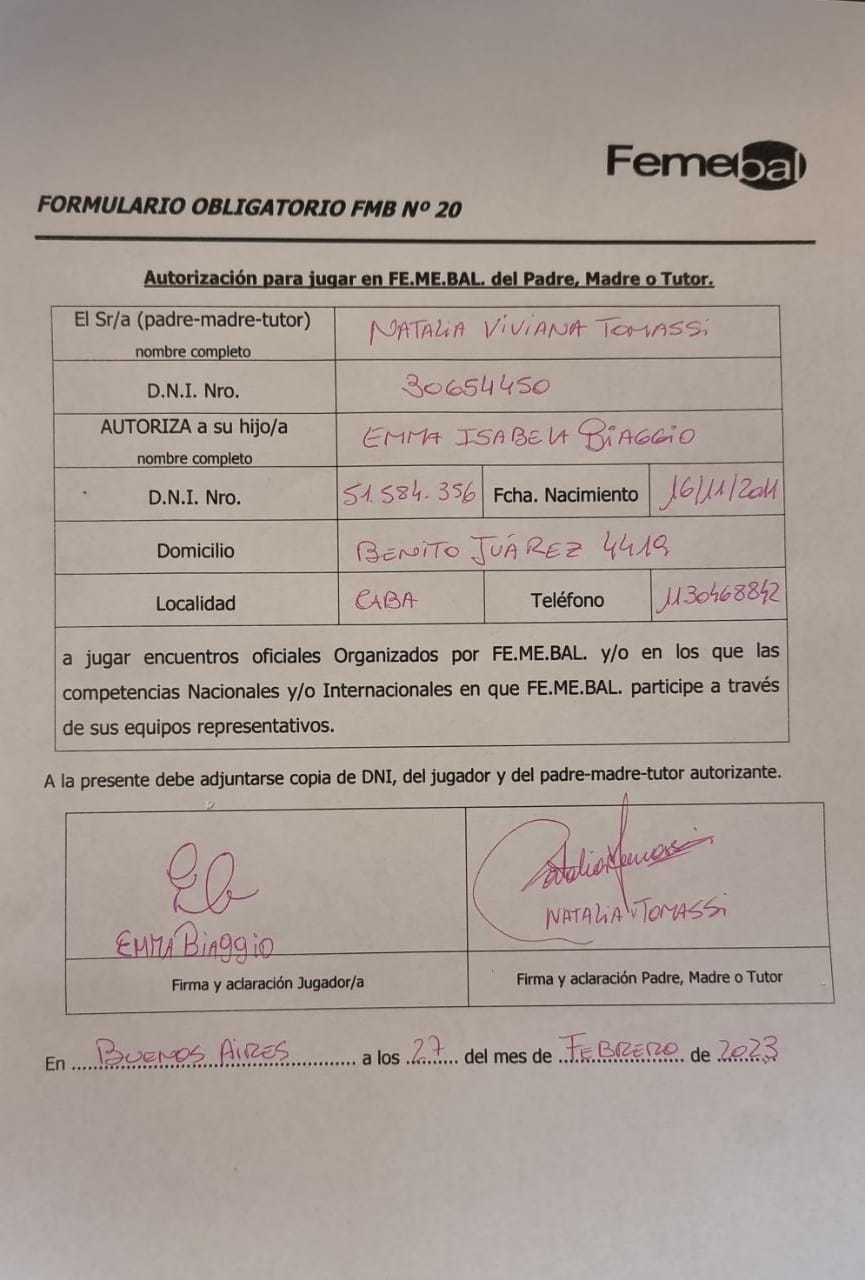 Femebal
FORMULARIO OBLIGATORIO FMB Nº 20
Autorización para jugar en FE.ME.BAL. del Padre, Madre o Tutor.
El Sr/a (padre-madre-tutor)
nombre completo
NATALIA VIVIANA TOMASSI
D.N.I. Nro.
30654450
AUTORIZA a su hijo/a
nombre completo
EMMA ISABELA BIAGGIO
D.N.I. Nro.
51.584.356
Fcha. Nacimiento
16/11/2011
Domicilio
BENITO JUÁREZ 4419
Localidad
CABA
Teléfono
1130468842
a jugar encuentros oficiales Organizados por FE.ME.BAL. y/o en los que las
competencias Nacionales y/o Internacionales en que FE.ME.BAL. participe a través
de sus equipos representativos.
A la presente debe adjuntarse copia de DNI, del jugador y del padre-madre-tutor autorizante.
EMMA BIAGGIO
NATALIA V TOMASSI
Firma y aclaración Jugador/a
Firma y aclaración Padre, Madre o Tutor
En BUENOS AIRES a los 27 del mes de FEBRERO de 2023